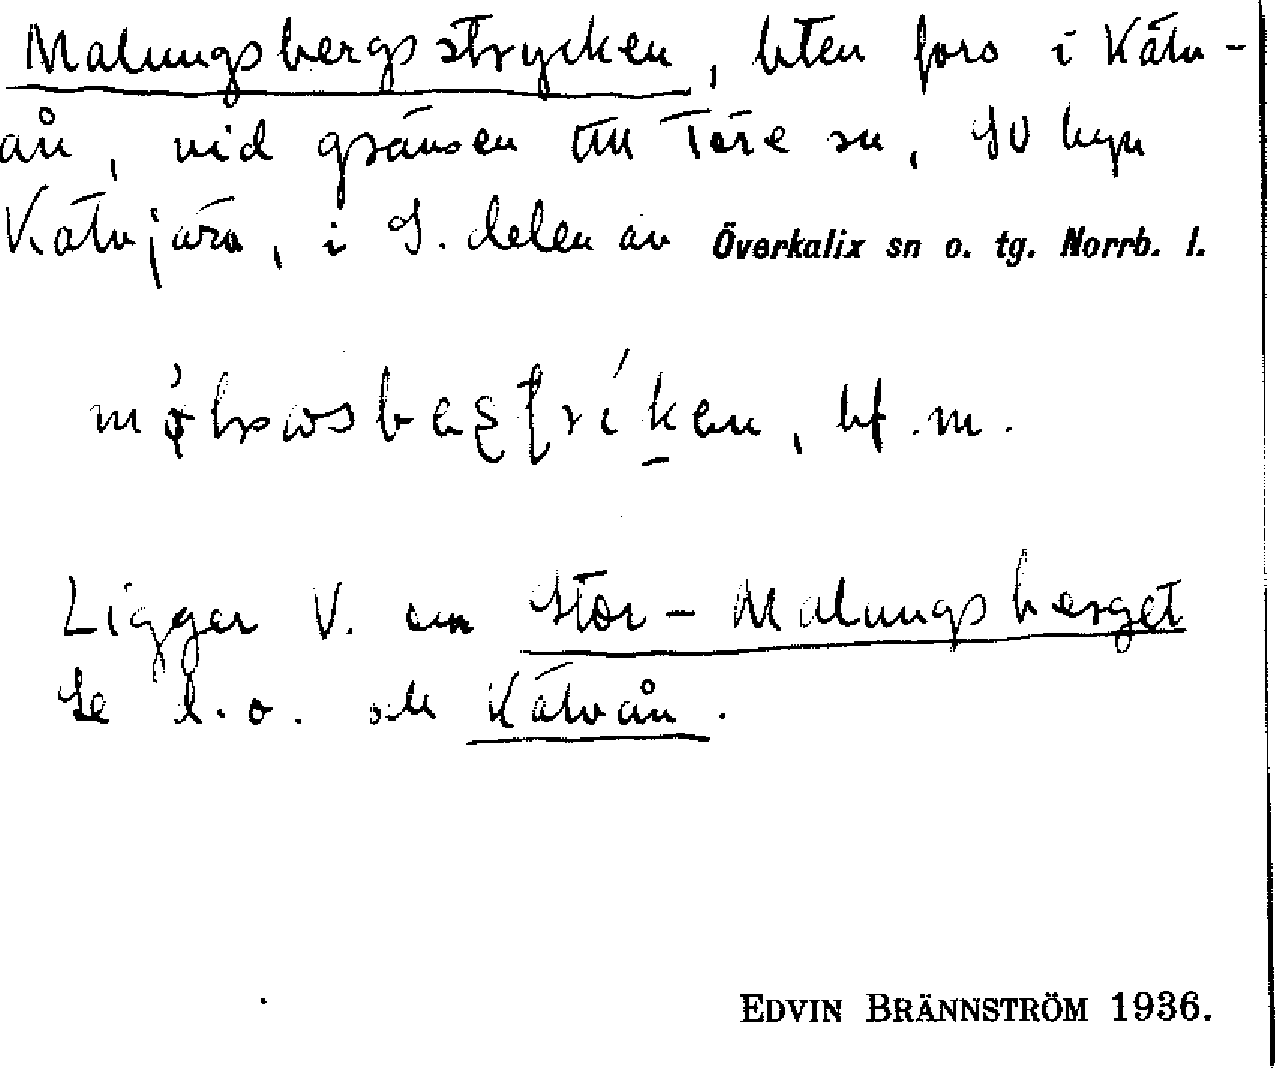 Malungsbergsstrycken, liten fors i Kätv-
ån, vid gränsen till Töre sn, SV byn
Kätvjärv, i S. delen av Överkalix sn o. tg. Norrb. l.
bf. m.
Ligger V. om Stor-Malungsberget
Se d. o. och Kätvån.
EDVIN BRÄNNSTRÖM 1936.